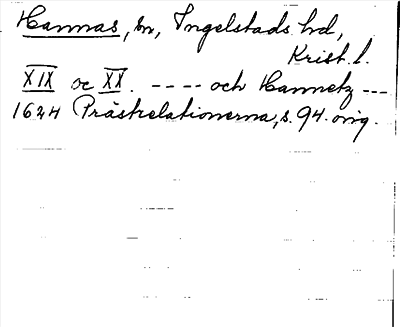 Hannas, sn, Ingelstads hd,
Krist. l.
XIX oc XX. ---- och Hannetz ---
1624 Prästrelationerna, s. 94. orig.